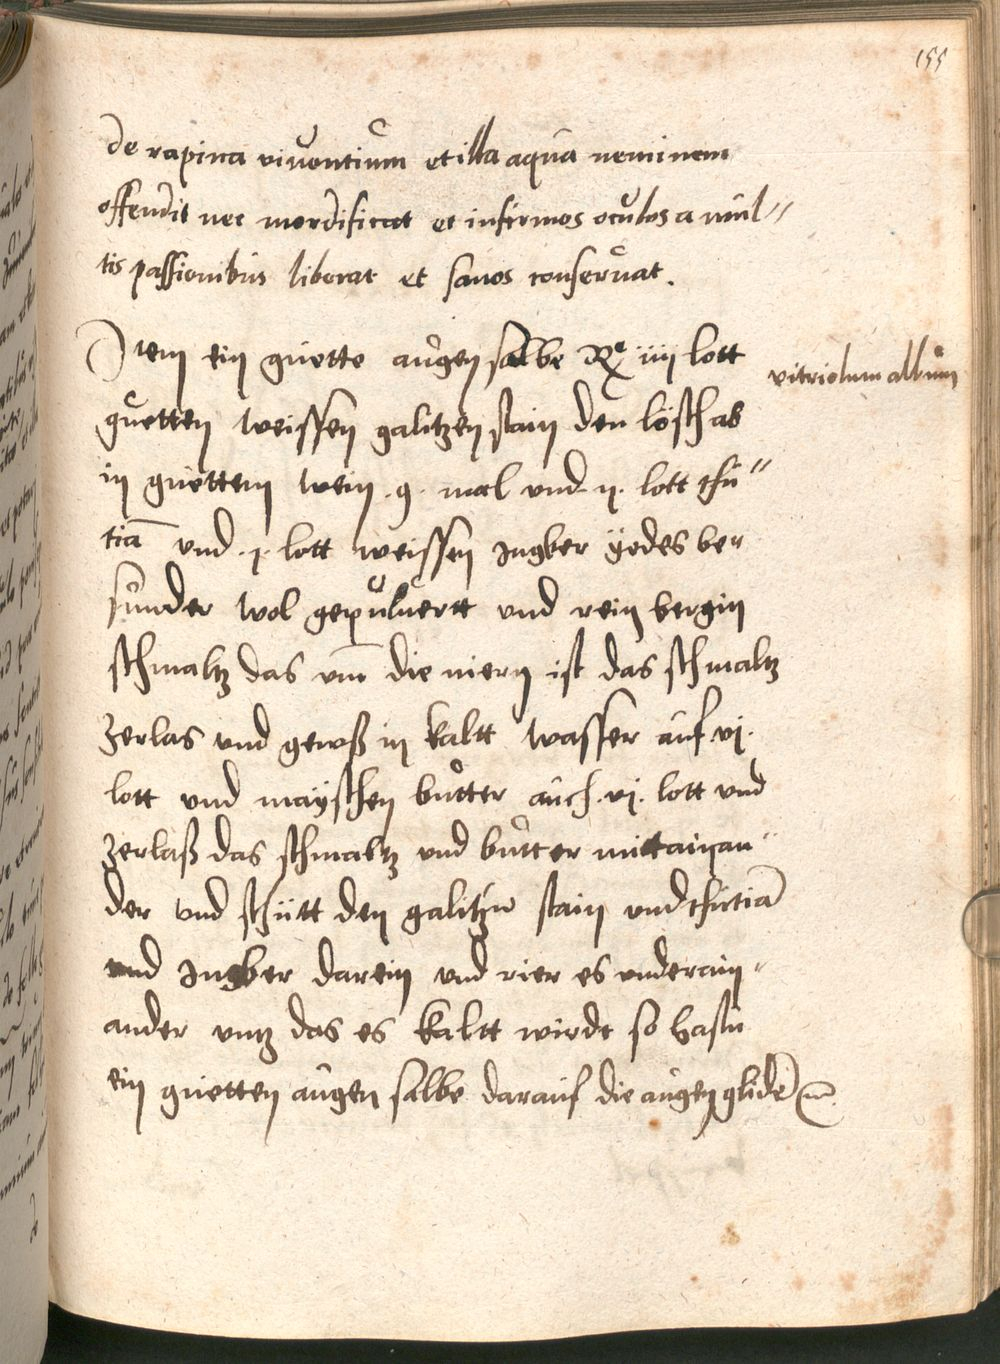 155
de rapina viventium et illa aqua neminem
offendit nec mordificat et infirmos oculos a mul〃
tis passionibus liberat et sanos conservat.
Item ein guette augen salbe Rͤ iiij lott
vitriolum album
guetten weissen galitzen stain den lösch ab
in guettem wein .9. mal vnd .ij. lott thu〃
tia vnd .j. lott weissen Jngber yedes be〃
sunder wol gepulvertt vnd rein bergin
schmaltz das vm̄ die niern ist das schmaltz
zerlas vnd geuß in kaltt wasser auf vj.
lott vnd mayschen butter auch .vj. lott vnd
zerlaß das schmaltz vnd butter mittainan〃
der vnd schütt den galitzn stain vnd thutia
vnd Jngber darein vnd rier es vnderain〃
ander vntz das es kaltt wirdt so hastu
ein guetten augen salbe darauf die augen glider